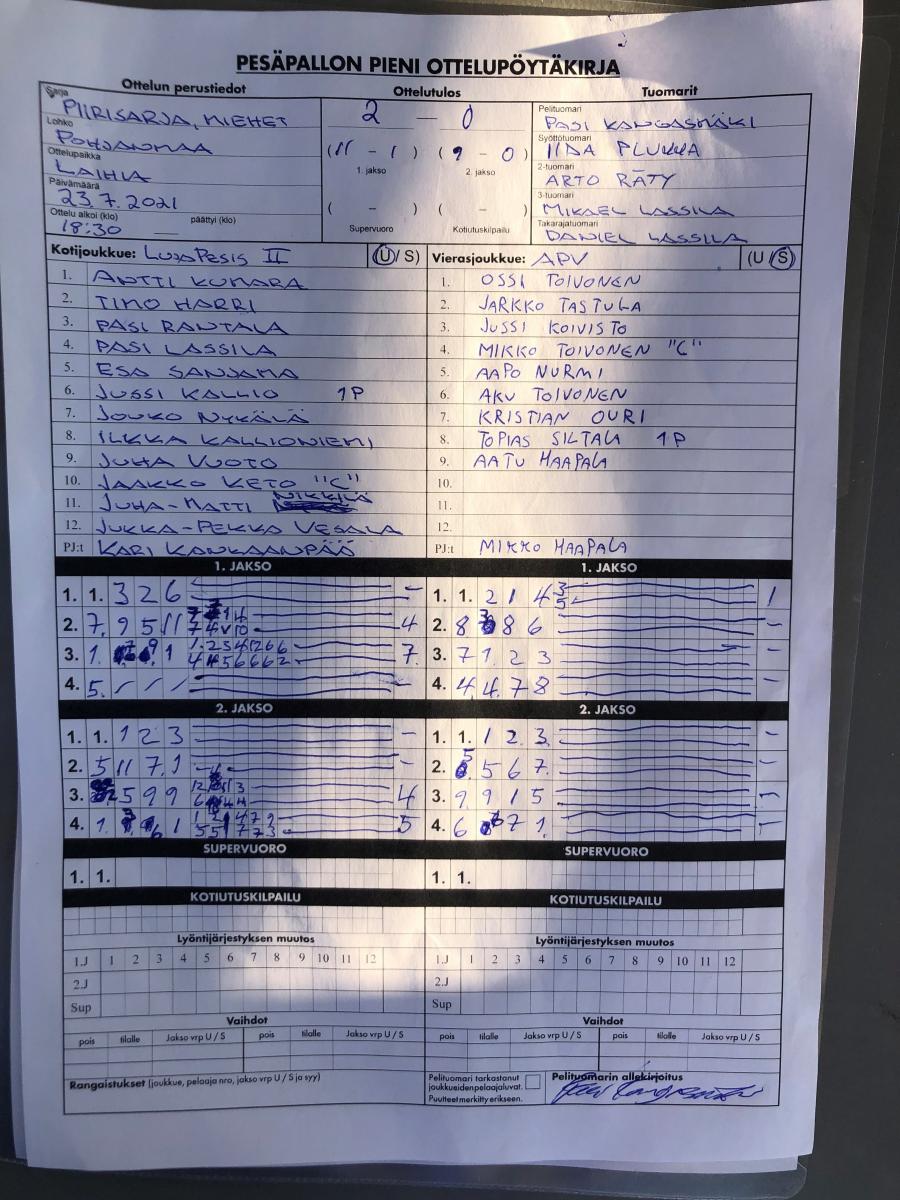 PESÄPALLON PIENI OTTELUPÖYTÄKIRJA
Ottelun perustiedot
Sarja
PIIRISARJA, MIEHET
Lohko
POHJANMAA
Ottelupaikka
LAIHIA
Päivämäärä
23.7.2021
Ottelu alkoi (klo) päättyi (klo)
18:30
Ottelutulos
2 — 0
(11 - 1) (9 - 0)
1. jakso 2. jakso
( - ) ( - )
Supervuoro Kotiutuskilpailu
Tuomarit
Pelituomari
PASI KANGASMÄKI
Syöttötuomari
IIDA PLUKKA
2-tuomari
ARTO RÄTY
3-tuomari
MIKAEL LASSILA
Takarajatuomari
DANIEL LASSILA
Kotijoukkue: LUJAPESIS II (U/ S)
1. ANTTI KUMARA
2. TIMO HARRI
3. PASI RANTALA
4. PASI LASSILA
5. ESA SANJAMA
6. JUSSI KALLIO 1P
7. JOUKO NYKÄLÄ
8. ILKKA KALLIONIEMI
9. JUHA VUOTO
10. JAAKKO KETO "C"
11. JUHA-MATTI NIKKILÄ
12. JUKKA-PEKKA VESALA
PJ:t KARI KANKAANPÄÄ
Vierasjoukkue: APV (U/ S)
1. OSSI TOIVONEN
2. JARKKO TASTULA
3. JUSSI KOIVISTO
4. MIKKO TOIVONEN "C"
5. AAPO NURMI
6. AKU TOIVONEN
7. KRISTIAN OURI
8. TOPIAS SILTALA 1P
9. AATU HAAPALA
10.
11.
12.
PJ:t MIKKO HAAPALA
1. JAKSO
1. 1. 3 2 6 -
2. 7. 9 5 11 4
3. 1. 1 7
4. 5. -
1. JAKSO
1. 1. 2 1 4 3 5 1
2. 8 8 6 -
3. 7 1. 2 3 -
4. 4 4. 7 8 -
2. JAKSO
1. 1. 1 2 3 -
2. 5 11 7. 1 -
3. 5 9 9 4
4. 1. 1 5
2. JAKSO
1. 1. 1 2. 3. -
2. 5 6 7. -
3. 9. 9 1 5 -
4. 6 7 1. -
SUPERVUORO
1. 1.
KOTIUTUSKILPAILU
Lyöntijärjestyksen muutos
1.J 1 2 3 4 5 6 7 8 9 10 11 12
2.J
Sup
Vaihdot
pois tilalle Jakso vrp U / S pois tilalle Jakso vrp U / S
Rangaistukset (joukkue, pelaaja nro, jakso vrp U / S ja syy)
SUPERVUORO
1. 1.
KOTIUTUSKILPAILU
Lyöntijärjestyksen muutos
1.J 1 2 3 4 5 6 7 8 9 10 11 12
2.J
Sup
Vaihdot
pois tilalle Jakso vrp U / S pois tilalle Jakso vrp U / S
Pelituomari tarkastanut
joukkueiden pelaajaluvat.
Puutteet merkitty erikseen.
Pelituomarin allekirjoitus